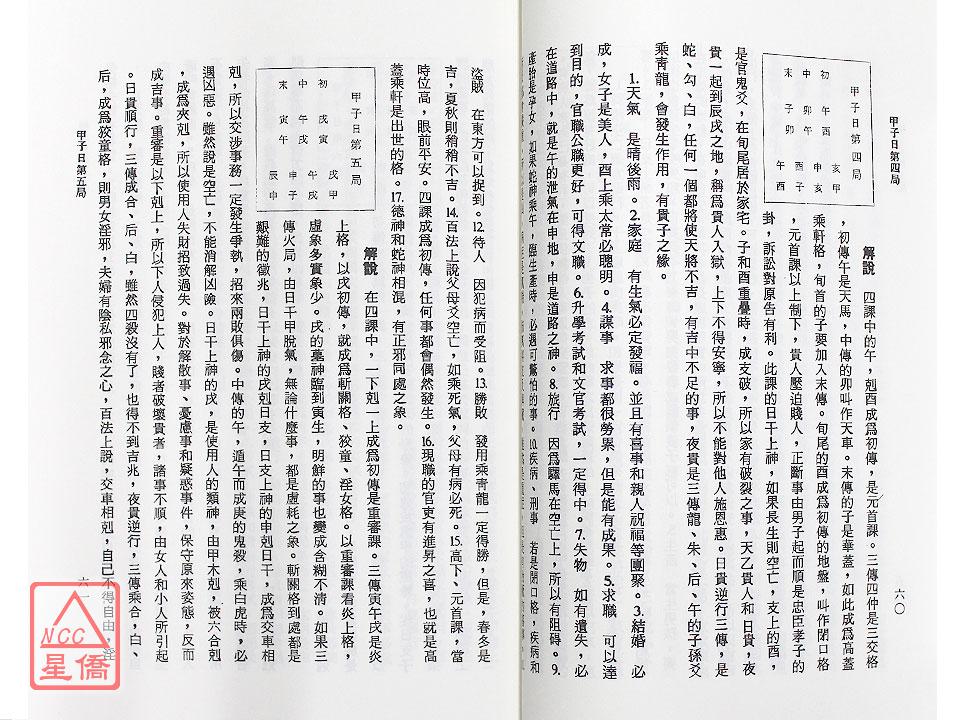 甲子日第四局
六〇
甲子日第四局
初 午酉
中 卯午
末 子卯
亥甲
申亥
酉子
午酉
解說　四課中的午，剋酉成爲初傳，是元首課。三傳四仲是三交格
，初傳午是天馬，中傳的卯叫作天車。末傳的子是華蓋，如此成爲高蓋
乘軒格，旬首的子要加入末傳。旬尾的酉成爲初傳的地盤，叫作閉口格
，元首課以上制下，貴人壓迫賤人，正斷事由男子起而順是忠臣孝子的
卦，訴訟對原告有利。此課的日干上神，如果長生則空亡，支上的酉，
是官鬼爻，在旬尾居於家宅。子和酉重疊時，成支破，所以家有破裂之事，天乙貴人和日貴，夜
貴一起到辰戌之地，稱爲貴人入獄，上下不得安寧，所以不能對他人施恩惠。日貴逆行三傳，是
蛇、勾、白，任何一個都將使天將不吉，有吉中不足的事，夜貴是三傳龍、朱、后、午的子孫爻
乘靑龍，會發生作用，有貴子之緣。
1.天氣　是晴後雨。2.家庭　有生氣必定發福。並且有喜事和親人祝福等團聚。3.結婚　必
成，女子是美人，酉上乘太常必聰明。4.謀事　求事都很勞累，但是能有成果。5.求職　可以達
到目的，官職公職更好，可得文職。6.升學考試和文官考試，一定得中。7.失物　如有遺失，必
在道路中，就是午的泄氣在申地，申是道路之神。8.旅行　因爲驛馬在空亡上，所以有阻碍。9.
產胎是子女，如果蛇神乘午，臨生產時，必遇可驚怕的事。10.疾病、刑事　若是閉口格，疾病和
盜賊　在東方可以捉到。12.待人　因犯病而受阻。13.勝敗　發用乘靑龍一定得勝，但是，春冬是
吉，夏秋則稍稍不吉。14.百法上說父母爻空亡，如乘死氣，父母有病必死。15.高下、元首課，當
時位高，眼前平安。四課成爲初傳，任何事都會偶然發生。16.現職的官吏有進昇之喜，也就是高
蓋乘軒是出世的格。17.德神和蛇神相混，有正邪同處之象。
甲子日第五局
初 戌寅
中 午戌
末 寅午
戌甲
午戌
申子
辰申
解說　在四課中，一下剋一上成爲初傳是重審課。三傳寅午戌是炎
上格，以戌初傳，就成爲斬關格、狡童、淫女格。以重審課看炎上格，
虛象多實象少。戌的墓神臨到寅生，明鮮的事也變成含糊不清。如果三
傳火局，由日干甲脫氣，無論什麼事，都是虛耗之象。斬關格到處都是
艱難的徵兆，日干上神的戌剋日支，日支上神的申剋日干，成爲交車相
剋，所以交涉事務一定發生爭執，招來兩敗俱傷。中傳的午，遁午而成庚的鬼殺，乘白虎時，必
遇凶惡。雖然說是空亡，不能消解凶險。日干上神的戌，是使用人的類神，由甲木剋，被六合剋
，成爲夾剋，所以使用人失財招致過失。對於解散事、憂慮事和疑惑事件，保守原來姿態，反而
成吉事。重審是以下剋上，所以下人侵犯上人，賤者破壞貴者，諸事不順，由女人和小人所引起
。日貴順行，三傳成合、后、白，雖然四殺沒有了，也得不到吉兆，夜貴逆行，三傳乘合、白、
后，成爲狡童格，則男女淫邪，夫婦有陰私邪念之心，百法上說，交車相剋，自己不得自由，淫
甲子日第五局
六一
NCC
星僑